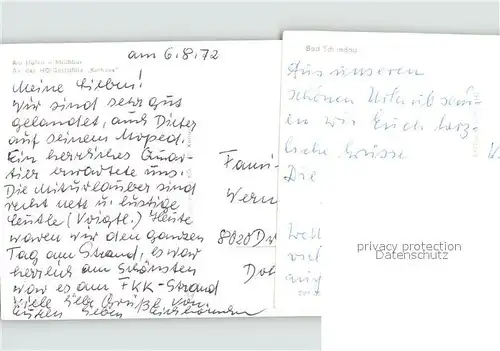 am 6.8.72
Am Hafen - Milchbar
An der HO-Gaststätte "Kurhaus"
Meine Lieben!
Wir sind sehr gut
gelandet, auch Dieter
auf seinem Moped.
Ein herrliches Quar-
tier erwartete uns.
Die Miturlauber sind
recht nett u. lustige
Leutle (Voigtl.) Heute
waren wir den ganzen
Tag am Strand, es war
herrlich am Schönsten
war es am FKK-Strand
viele liebe Grüße von
Euren lieben
Fami-
Wern
8020 Dr
Dob
Bad Schandau
Aus unseren
schönen Urlaub sen-
en wir Euch herz-
liche Grüsse
Die
Wett
viel
auf
privacy protection
Datenschutz